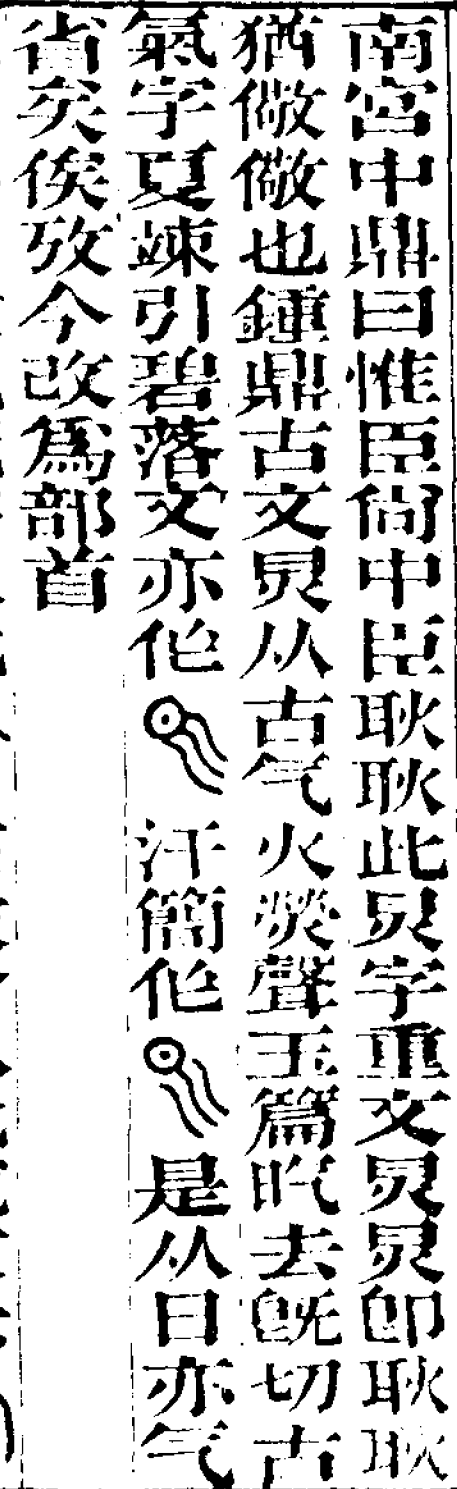 南宮中鼎曰惟臣尙中臣耿耿此炅字重文炅炅卽耿耿
猶儆儆也鍾鼎古文炅从古气火熒聲玉篇㫓去旣切古
氣字夏竦引碧落文亦作汗簡作是从日亦气
省矣俟攷今改爲部首